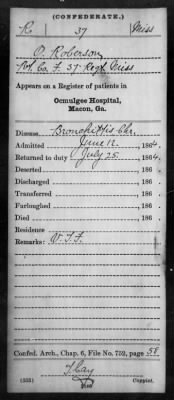 (CONFEDERATE.)
R 37 Miss
O. Roberson
Co. F. 37 Regt Miss
Appears on a Register of patients in
Ocmulgee Hospital,
Macon, Ga.
Disease Bronchitis Chr.
Admitted June 12, 1864.
Returned to duty July 25, 1864.
Deserted , 186 .
Discharged , 186 .
Transferred , 186 .
Furloughed , 186 .
Died , 186 .
Residence
Remarks: W. I. F.
Confed. Arch., Chap. 6, File No. 759, page 58
(535) Copyist.